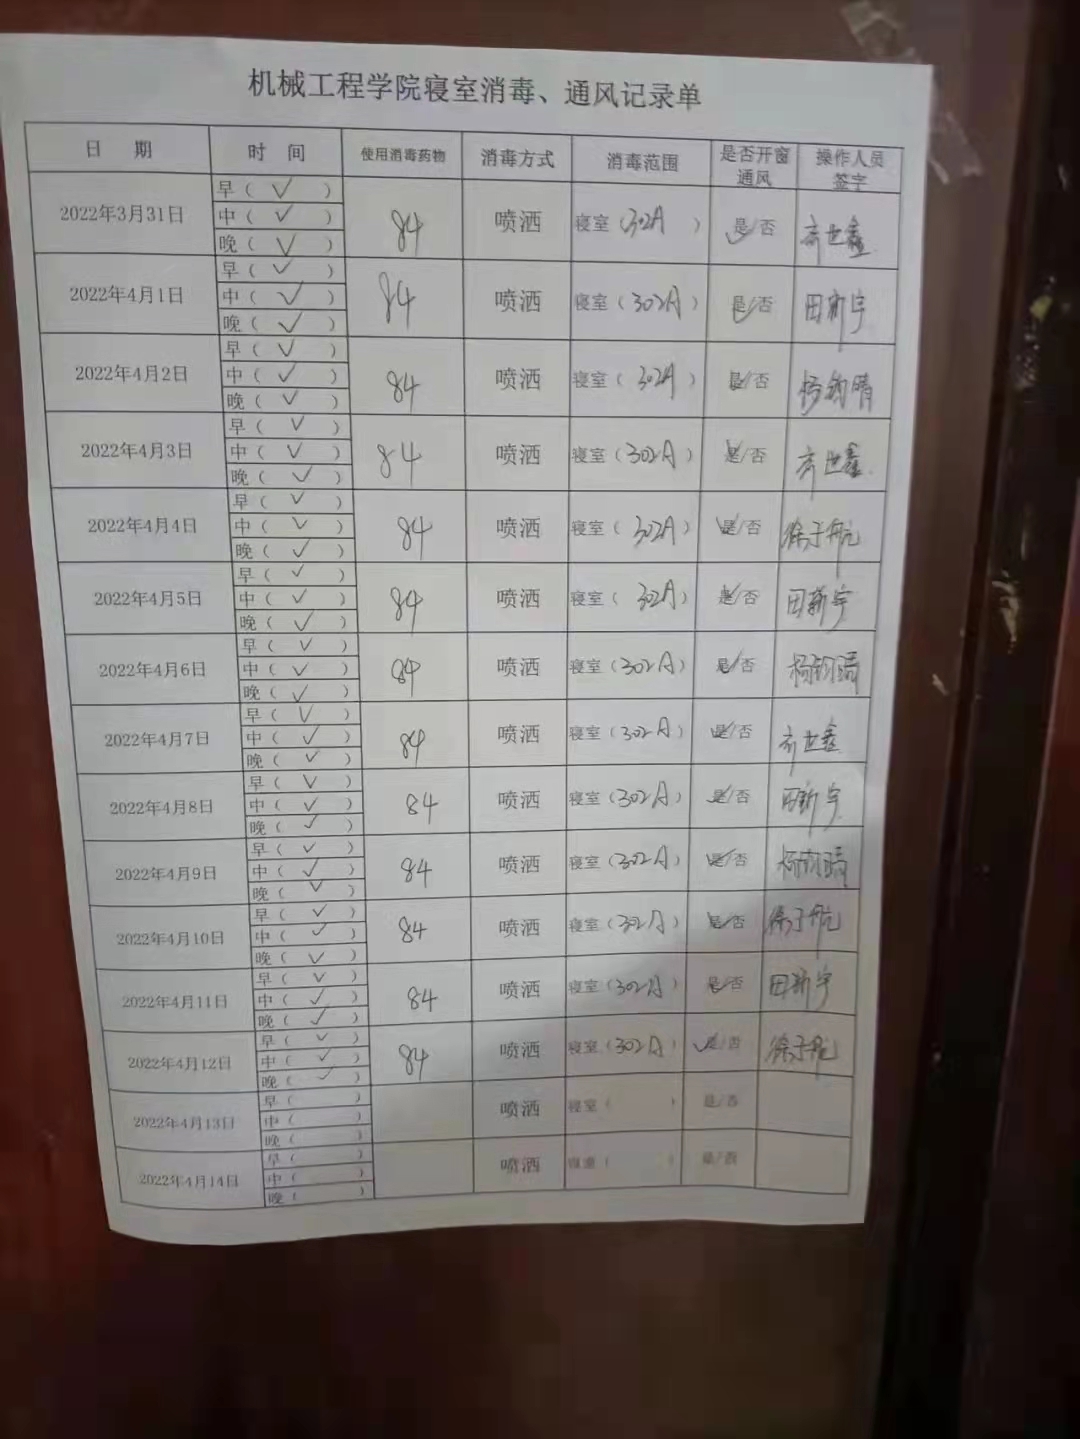 机械工程学院寝室消毒、通风记录单
日 期 时 间 使用消毒药物 消毒方式 消毒范围 是否开窗通风 操作人员签字
2022年3月31日 早(✓) 中(✓) 晚(✓) 84 喷洒 寝室(302A) 是/否 齐世鑫
2022年4月1日 早(✓) 中(✓) 晚(✓) 84 喷洒 寝室(302A) 是/否 田新宇
2022年4月2日 早(✓) 中(✓) 晚(✓) 84 喷洒 寝室(302A) 是/否
2022年4月3日 早(✓) 中(✓) 晚(✓) 84 喷洒 寝室(302A) 是/否 齐世鑫
2022年4月4日 早(✓) 中(✓) 晚(✓) 84 喷洒 寝室(302A) 是/否 徐子航
2022年4月5日 早(✓) 中(✓) 晚(✓) 84 喷洒 寝室(302A) 是/否 田新宇
2022年4月6日 早(✓) 中(✓) 晚(✓) 84 喷洒 寝室(302A) 是/否
2022年4月7日 早(✓) 中(✓) 晚(✓) 84 喷洒 寝室(302A) 是/否 齐世鑫
2022年4月8日 早(✓) 中(✓) 晚(✓) 84 喷洒 寝室(302A) 是/否 田新宇
2022年4月9日 早(✓) 中(✓) 晚(✓) 84 喷洒 寝室(302A) 是/否
2022年4月10日 早(✓) 中(✓) 晚(✓) 84 喷洒 寝室(302A) 是/否 徐子航
2022年4月11日 早(✓) 中(✓) 晚(✓) 84 喷洒 寝室(302A) 是/否 田新宇
2022年4月12日 早(✓) 中(✓) 晚(✓) 84 喷洒 寝室(302A) ✓是/否 徐子航
2022年4月13日 早( ) 中( ) 晚( ) 喷洒 寝室( ) 是/否
2022年4月14日 早( ) 中( ) 晚( ) 喷洒 寝室( ) 是/否